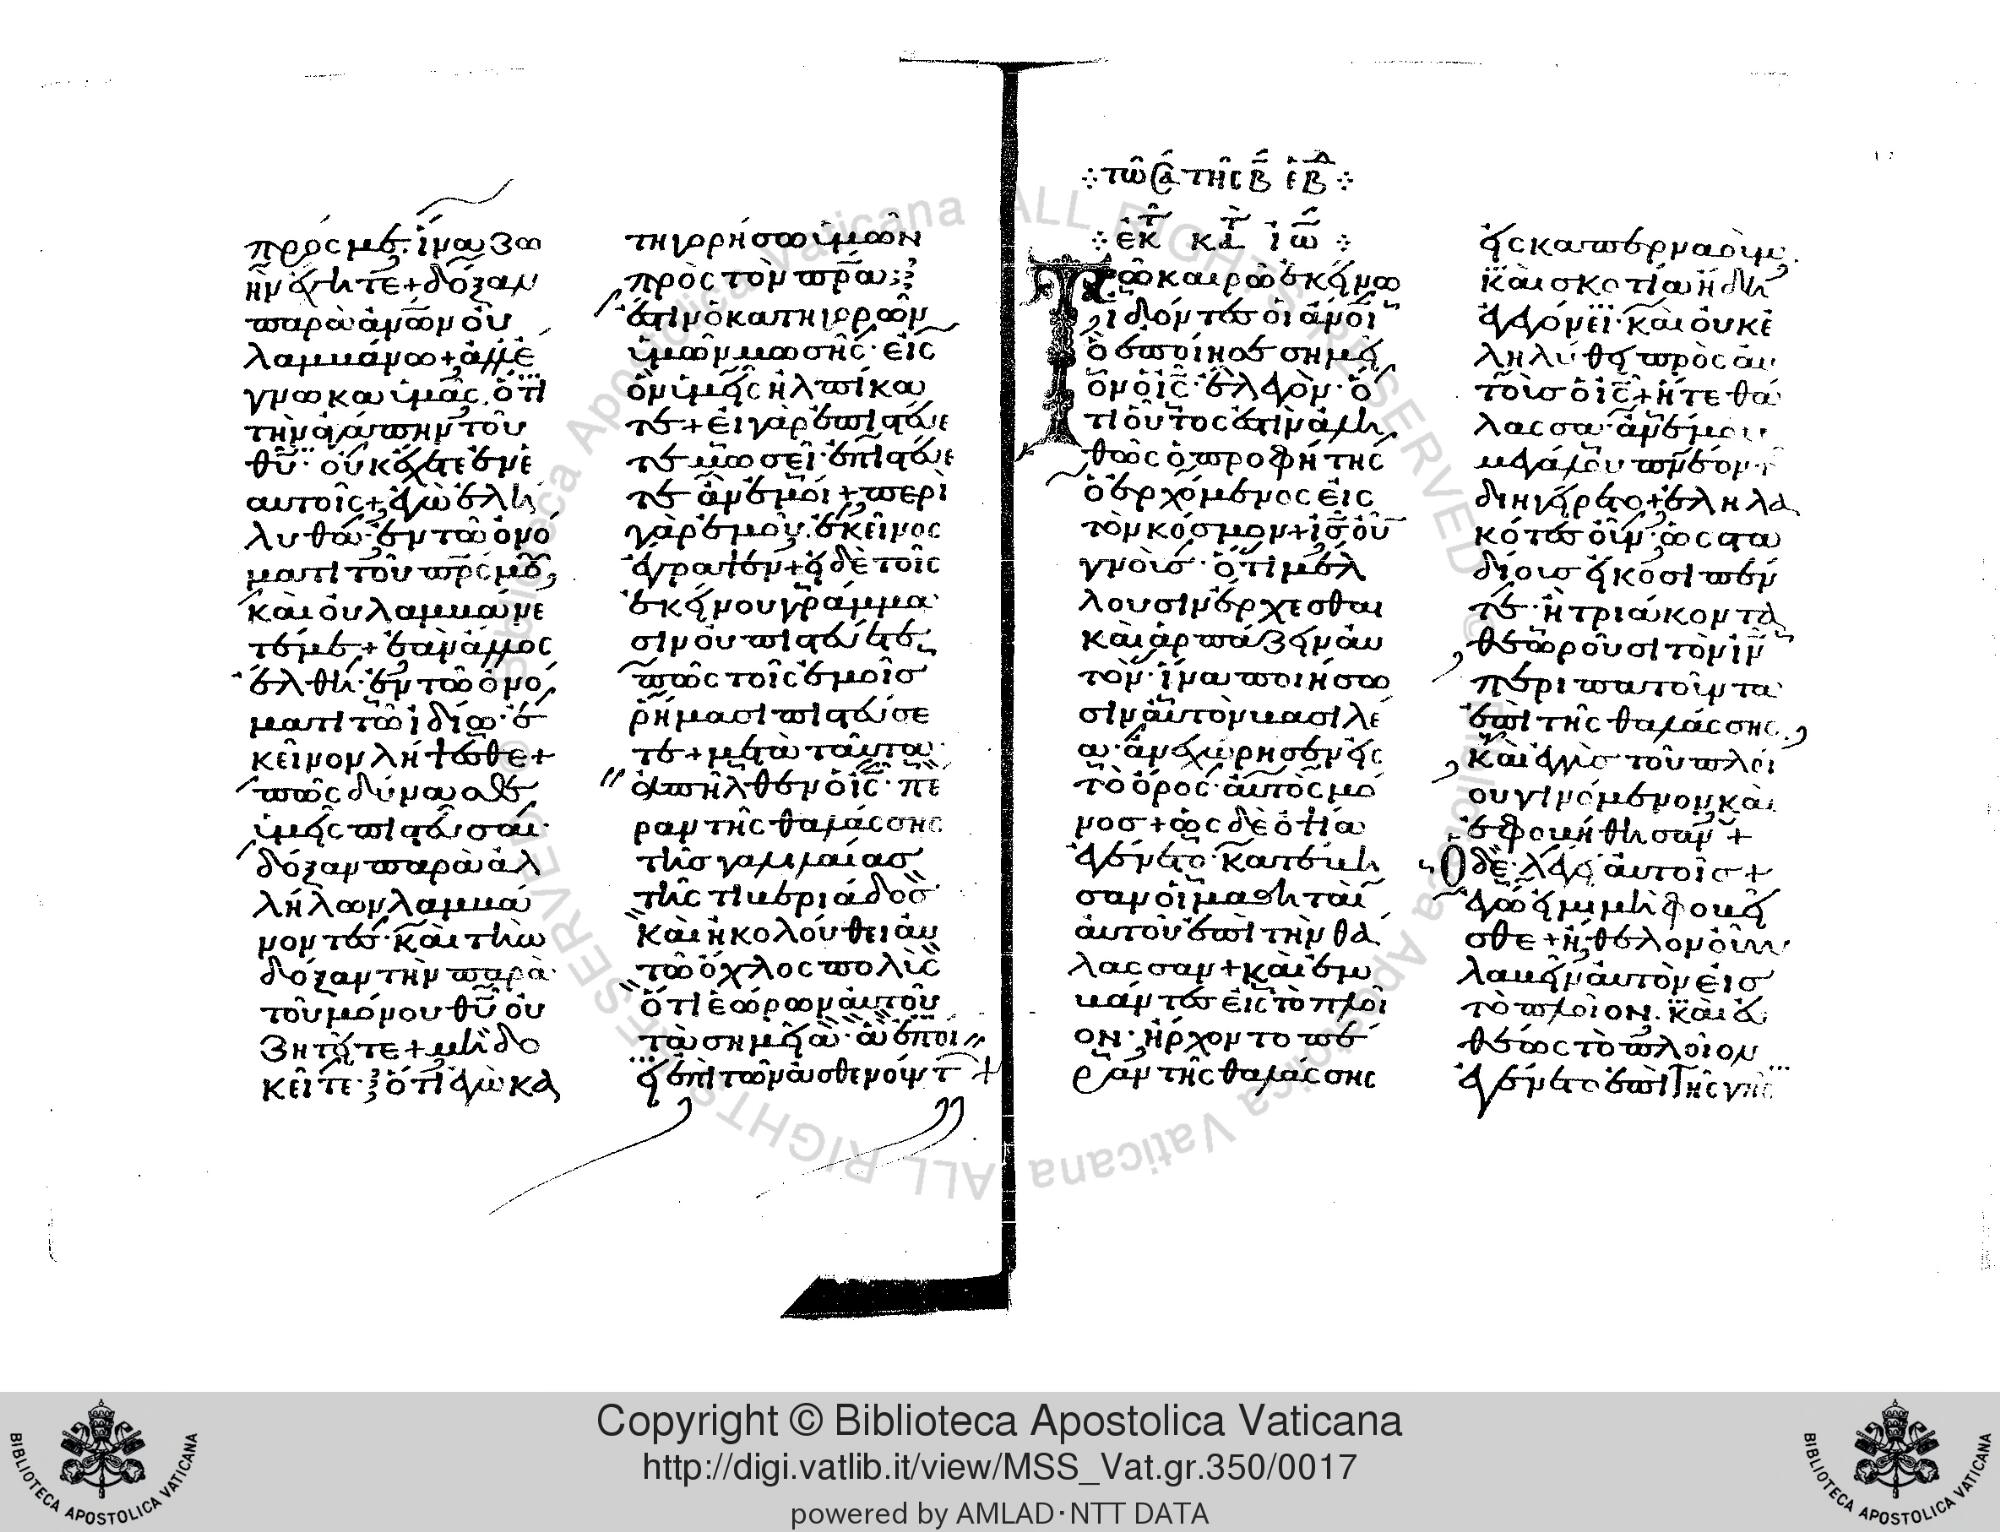 πρός με· ἵνα ζω
ὴν ἔχητε + δόξαν
παρὰ ἀνων οὐ
λαμβάνω + ἀλλ ἔ
γνωκα ὑμᾶς· ὅτι
τὴν ἀγάπην τοῦ
θυ οὐκ ἔχετε ἐν ἑ
αυτοῖς + ἐγὼ ἐλή
λυθα ἐν τῶ ὀνό
ματι τοῦ πρς μου
καὶ οὐ λαμβάνε
τέ με + ἐὰν ἄλλος
ἔλθη ἐν τῶ ὀνό
ματι τῶ ἰδίω· ἐ
κεῖνον λήψεσθε +
πῶς δύνασθε
ὑμεῖς πιστεῦσαι
δόξαν παρὰ ἀλ
λήλων λαμβά
νοντες· καὶ τὴν
δόξαν τὴν παρὰ
τοῦ μόνου θυ οὐ
ζητεῖτε + μὴ δο
κεῖτε ὅτι ἐγὼ κα
τηγορήσω ὑμῶν
πρὸς τὸν πρα
ἔστιν ὁ κατηγορῶν
ὑμῶν μωσῆς· εἰς
ὃν ὑμεῖς ἠλπίκα
τε + εἰ γὰρ ἐπιστεύε
τε μωσεῖ· ἐπιστεύε
τε ἂν ἐμοί + περὶ
γὰρ ἐμοῦ ἐκεῖνος
ἔγραψεν + εἰ δὲ τοῖς
ἐκείνου γράμμα
σιν οὐ πιστεύετε
πῶς τοῖς ἐμοῖς
ῥήμασι πιστεύσε
τε + μετὰ ταῦτα
ἀπῆλθεν ὁ ις πέ
ραν τῆς θαλάσσης
τῆς γαλιλαίας
τῆς τιβεριάδος
καὶ ἠκολούθει αὐ
τῶ ὄχλος πολὺς
ὅτι ἑώρων αὐτοῦ
τὰ σημεῖα ἃ ἐποί
ει ἐπὶ τῶν ἀσθενούντ +
⁘ τῶ Σα τῆς β ἑβδ ⁘
⁘ ἐκ τ κτ ιω ⁘
Τῶ καιρῶ ἐκείνω
ἰδόντες οἱ ἄνοι
ὃ ἐποίησε σημεῖ
ον ὁ ις· ἔλεγον· ὅ
τι οὗτος ἐστὶν ἀλη
θῶς ὁ προφήτης
ὁ ἐρχόμενος εἰς
τὸν κόσμον + ις οὖν
γνοὺς· ὅτι μέλ
λουσιν ἔρχεσθαι
καὶ ἁρπάζειν αὐ
τὸν· ἵνα ποιήσω
σιν αὐτὸν βασιλέ
α· ἀνεχώρησεν εἰς
τὸ ὄρος· αὐτὸς μό
νος + ὡς δὲ ὀψία
ἐγένετο· κατέβη
σαν οἱ μαθηταὶ
αὐτοῦ ἐπὶ τὴν θά
λασσαν + καὶ ἐμ
βάντες εἰς τὸ πλοῖ
ον· ἤρχοντο πέ
ραν τῆς θαλάσσης
εἰς καπερναούμ
καὶ σκοτία ἤδη
ἐγεγόνει· καὶ οὐκ ἐ
ληλύθει πρὸς αὐ
τοὺς ὁ ις + ἥ τε θά
λασσα· ἀνέμου
μεγάλου πνέοντ
διηγείρετο + ἐληλα
κότες οὖν· ὡς στα
δίους εἴκοσι πέν
τε· ἢ τριάκοντα
θεωροῦσι τὸν ιν
περιπατοῦντα
ἐπὶ τῆς θαλάσσης
καὶ ἐγγὺς τοῦ πλοί
ου γινόμενον καὶ
ἐφοβήθησαν +
Ὁ δὲ λέγει αὐτοῖς +
ἐγώ εἰμι μὴ φοβεῖ
σθε + ἤθελον οὖν
λαβεῖν αὐτὸν εἰς
τὸ πλοῖον· καὶ εὐ
θέως τὸ πλοῖον
ἐγένετο ἐπὶ τῆς γῆς
Copyright © Biblioteca Apostolica Vaticana
http://digi.vatlib.it/view/MSS_Vat.gr.350/0017
powered by AMLAD·NTT DATA
BIBLIOTECA APOSTOLICA VATICANA
BIBLIOTECA APOSTOLICA VATICANA